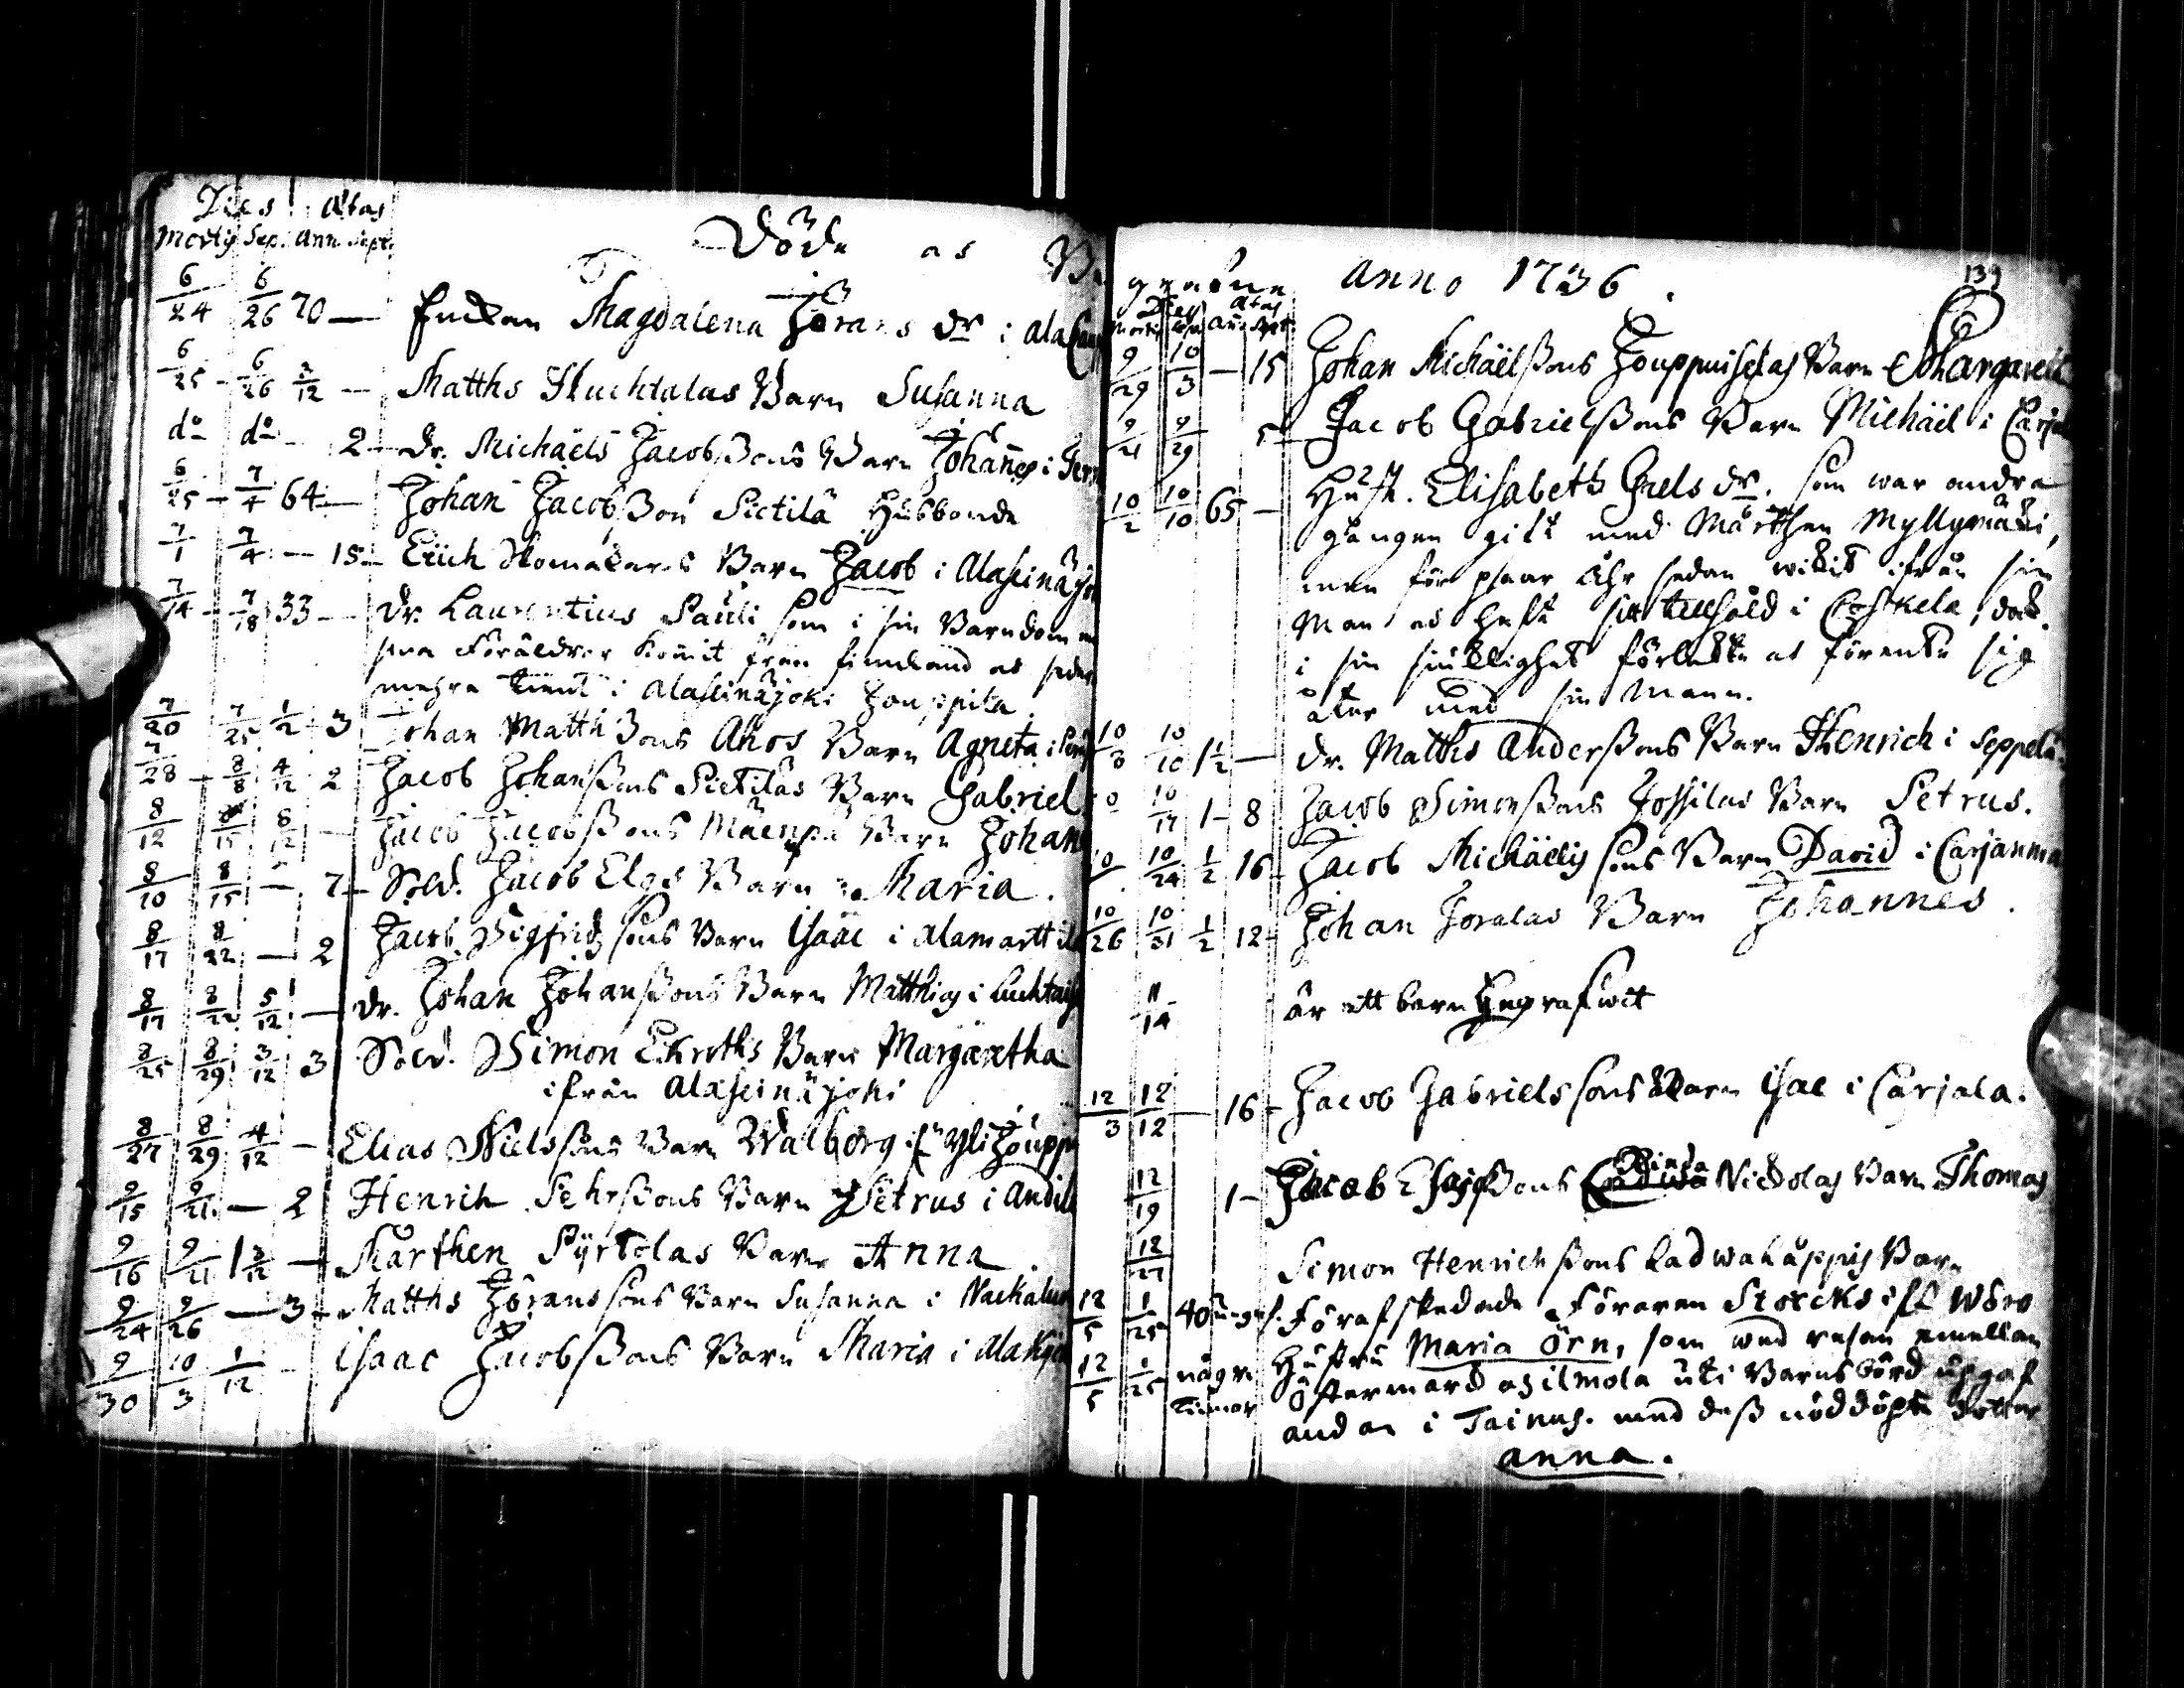 Dies Ætas
Mortis Sep. Ann. Sept.
Döde as
6/24 6/26 70 — Enckan Magdalena Jörans dr i Ala
6/25 6/26 3/12 — Matths Huchtalas Barn Susanna
do do 2 — dr. Michaels Jacobssons Barn Johannes i
6/25 7/4 64 — Johan Jacobsson Pietilä Husbonde
7/1 7/4 — 15 — Erich Skomakares Barn Jacob i Alaseinäjo
7/14 7/18 33 — dr. Laurentius Pauli som i sin Barndom
sina Föräldrar kommit från finland as
mehra tient i Alaseinäjoki Jouppila
7/20 7/25 1/2 3 Johan Matthssons Ahos Barn Agneta i
7/28 8/8 4/12 2 Jacob Johanssons Pietiläs Barn Gabriel
8/12 8/15 8/12 — Jacob Jacobssons Mäenpä Barn Johan
8/10 8/15 — 7 — Sold. Jacob Elgs Barn Maria.
8/17 8/22 — 2 Jacob Sigfridssons Barn Isaac i Alamartti
8/17 8/22 5/12 — dr. Johan Johanssons Barn Matthias i Luchta
8/25 8/29 3/12 3 Sold. Simon Ekroths Barn Margaretha
ifrån Alaseinäjoki
8/27 8/29 4/12 — Elias Nielssons Barn Walborg if. Ylijoupp
9/15 9/21 — 2 Henrich Pehrssons Barn Petrus i Andil
9/16 9/21 1 3/12 — Marthen Pyrtolas Barn Anna.
9/24 9/26 — 3 — Matths Jöranssons Barn Susanna i
9/30 10/3 1/12 — Isaac Jacobssons Barn Maria i Ala
grafne Anno 1736.
139
Dies Ætas
Mortis Sep. Ann. Sept.
9/29 10/3 — 15 Johan Michäelssons Jouppuisetas Barn Margareta
9/21 9/29 5 — Jacob Gabrielssons Barn Michäel i Carja
10/2 10/10 65 — Hust. Elisabeth Grels dr. som war andra
gången gift med Mårthen Myllymäki,
men för pvaar åhr sedan wikit ifrån sin
Man as haft sitt tillhåld i Coskela, dock
i sin siuklighet förlikte as förente sig
åter med sin Mann.
10/3 10/10 1 1/2 — dr. Matths Anderssons Barn Henrich i Seppelä
10/17 1 — 8 Jacob Simonssons Jossilas Barn Petrus.
10/24 1/2 16 — Jacob Michäelis sons Barn David i Carjanma
10/26 10/31 1/2 12 — Johan Joralas Barn Johannes.
11/14 är ett barn begrafwit
12/3 12/12 — 16 — Jacob Gabrielssons Barn Isac i Carjala.
12/19 1 — Jacob Esaiæssons Nickolas Barn Thomas
12/27 Simon Henrichssons Ladwakåppis Barn
12/5 1/25 40 Förafskedade Föraren Storcks ifr. Wörå
12/5 1/25 några Hustru Maria Örn, som wed resan emellan
Timar Östermark as ilmola uti Barnsbörd upgaf
andan i Tainus. med dess nöddöpta dotter
Anna.